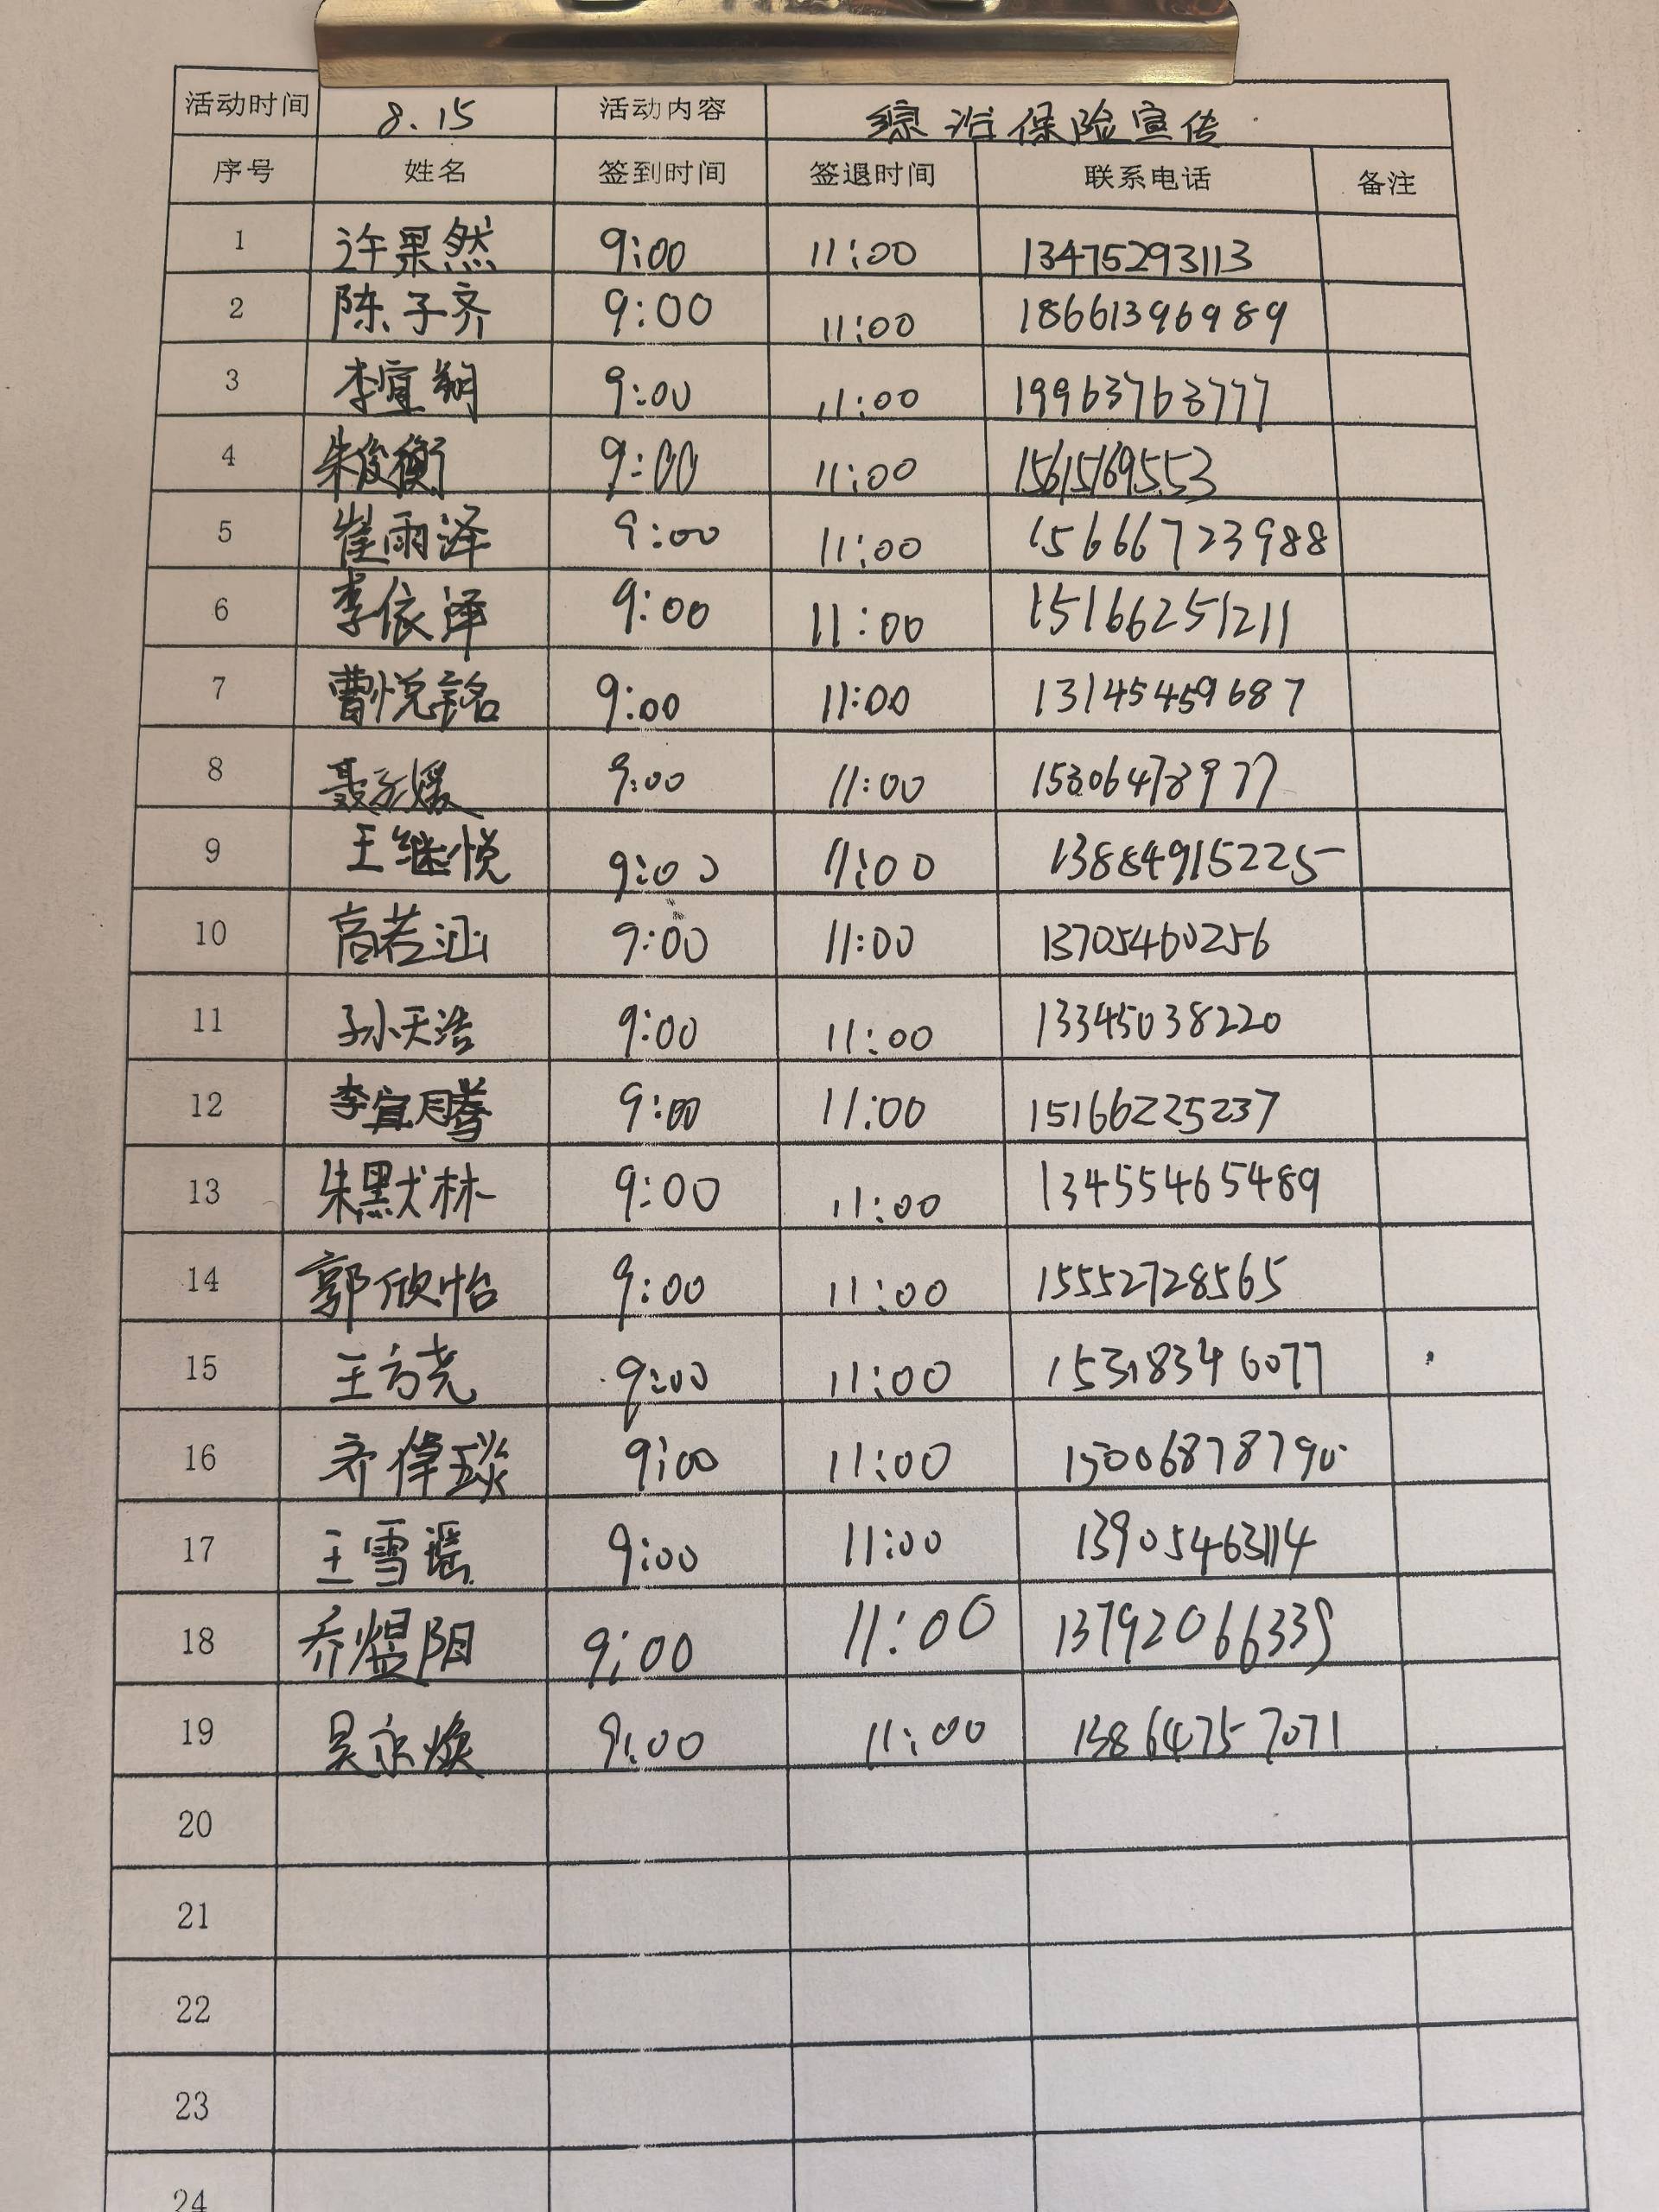 活动时间 8.15 活动内容 综治保险宣传
序号 姓名 签到时间 签退时间 联系电话 备注
1 许果然 9:00 11:00 13475293113
2 陈子齐 9:00 11:00 18661396989
3 李宜朔 9:00 11:00 19963763777
4 朱俊衡 9:00 11:00 15615169553
5 崔雨泽 9:00 11:00 15666723988
6 李依泽 9:00 11:00 15166251211
7 曹悦铭 9:00 11:00 13145459687
8 9:00 11:00 15306478977
9 王继悦 9:00 11:00 13884915225
10 高若涵 9:00 11:00 13705460256
11 孙天浩 9:00 11:00 13345038220
12 李宜腾 9:00 11:00 15166225237
13 朱默林 9:00 11:00 13455465489
14 郭欣怡 9:00 11:00 15552728565
15 王方尧 9:00 11:00 15318346077
16 齐偉琰 9:00 11:00 15006878790
17 王雪瑶 9:00 11:00 13905463114
18 乔煜阳 9:00 11:00 13792066339
19 吴永焕 9:00 11:00 13864757071
20
21
22
23
24